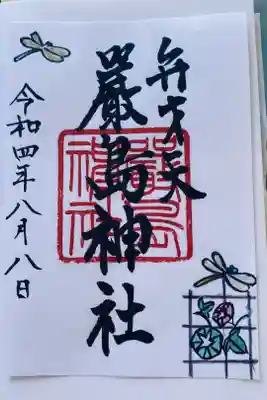 弁才天
嚴島神社
令和四年八月八日